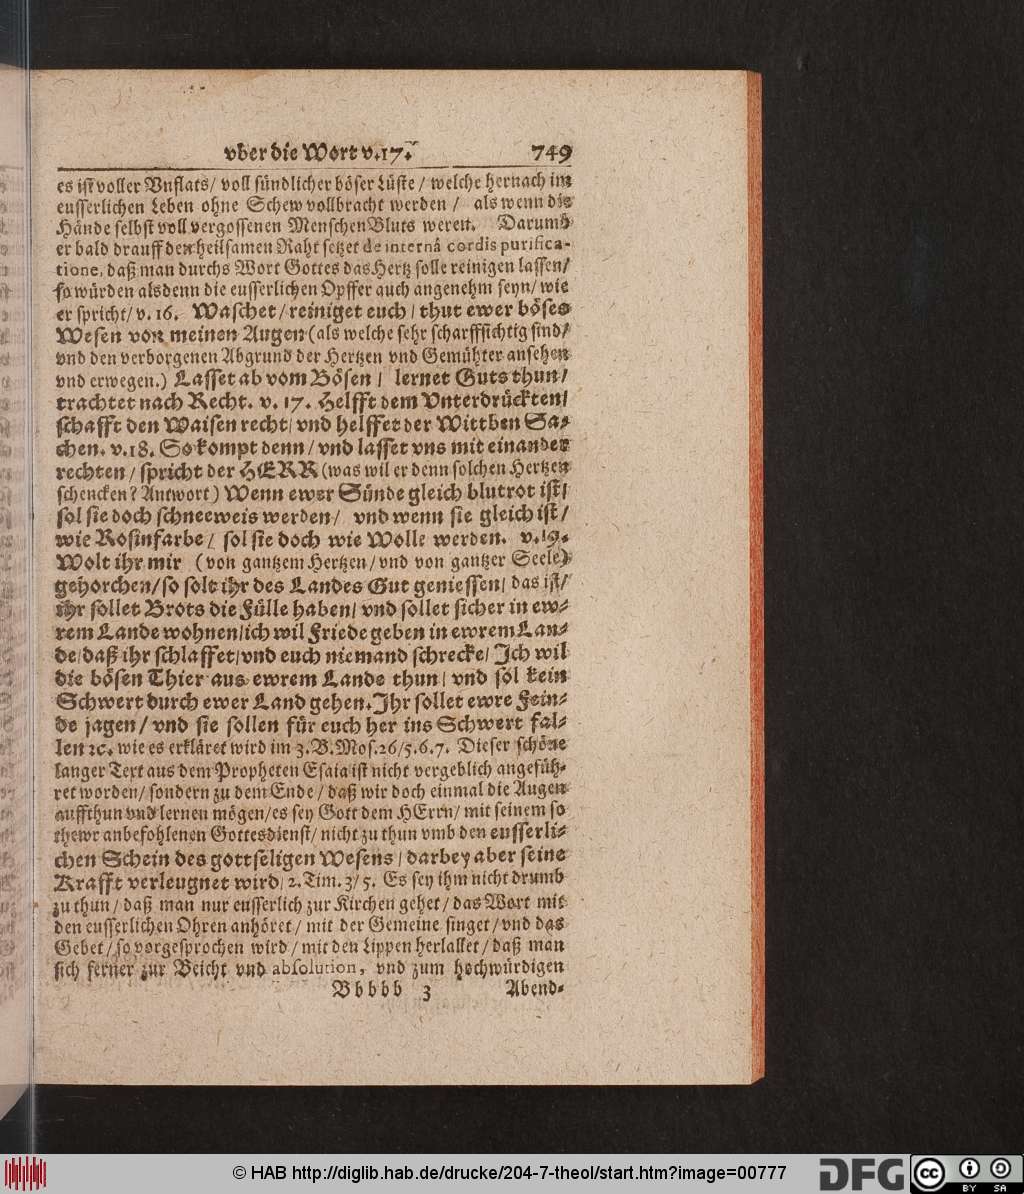 vber die Wort v.17. 749
es ist voller Vnflats/ voll sündlicher böser Lüste/ welche hernach im
eusserlichen Leben ohne Schew vollbracht werden/ als wenn die
Hände selbst voll vergossenen Menschen Bluts weren. Darumb
er bald drauff den heilsamen Raht setzet de internâ cordis purifica-
tione, daß man durchs Wort Gottes das Hertz solle reinigen lassen/
so würden alsdenn die eusserlichen Opffer auch angenehm seyn/ wie
er spricht/ v. 16. Waschet/ reiniget euch/ thut ewer böses
Wesen von meinen Augen (als welche sehr scharffsichtig sind/
vnd den verborgenen Abgrund der Hertzen vnd Gemühter ansehen
vnd erwegen.) Lasset ab vom Bösen/ lernet Guts thun/
trachtet nach Recht. v. 17. Helfft dem Vnterdrückten/
schafft den Waisen recht/ vnd helffet der Wittben Sa-
chen. v.18. So kompt denn/ vnd lasset vns mit einander
rechten/ spricht der HERR (was wil er denn solchen Hertzen
schencken? Antwort) Wenn ewer Sünde gleich blutrot ist/
sol sie doch schneeweis werden/ vnd wenn sie gleich ist/
wie Rosinfarbe/ sol sie doch wie Wolle werden. v.19.
Wolt ihr mir (von gantzem Hertzen/ vnd von gantzer Seele)
gehorchen/ so solt ihr des Landes Gut geniessen/ das ist/
ihr sollet Brots die Fülle haben/ vnd sollet sicher in ew-
rem Lande wohnen/ ich wil Friede geben in ewrem Lan-
de/ daß ihr schlaffet/ vnd euch niemand schrecke/ Ich wil
die bösen Thier aus ewrem Lande thun/ vnd sol kein
Schwert durch ewer Land gehen. Ihr sollet ewre Fein-
de jagen/ vnd sie sollen für euch her ins Schwert fal-
len ꝛc. wie es erkläret wird im 3. B. Mos. 26/5.6.7. Dieser schöne
langer Text aus dem Propheten Esaia ist nicht vergeblich angefüh-
ret worden/ sondern zu dem Ende/ daß wir doch einmal die Augen
auffthun vnd lernen mögen/ es sey Gott dem HErrn/ mit seinem so
thewr anbefohlenen Gottesdienst/ nicht zu thun vmb den eusserli-
chen Schein des gottseligen Wesens/ darbey aber seine
Krafft verleugnet wird/ 2. Tim. 3/5. Es sey ihm nicht drumb
zu thun/ daß man nur eusserlich zur Kirchen gehet/ das Wort mit
den eusserlichen Ohren anhöret/ mit der Gemeine singet/ vnd das
Gebet/ so vorgesprochen wird/ mit den Lippen herlallet/ daß man
sich ferner zur Beicht vnd absolution, vnd zum hochwürdigen
Bbbbb 3 Abend-
© HAB http://diglib.hab.de/drucke/204-7-theol/start.htm?image=00777
DFG
cc BY SA